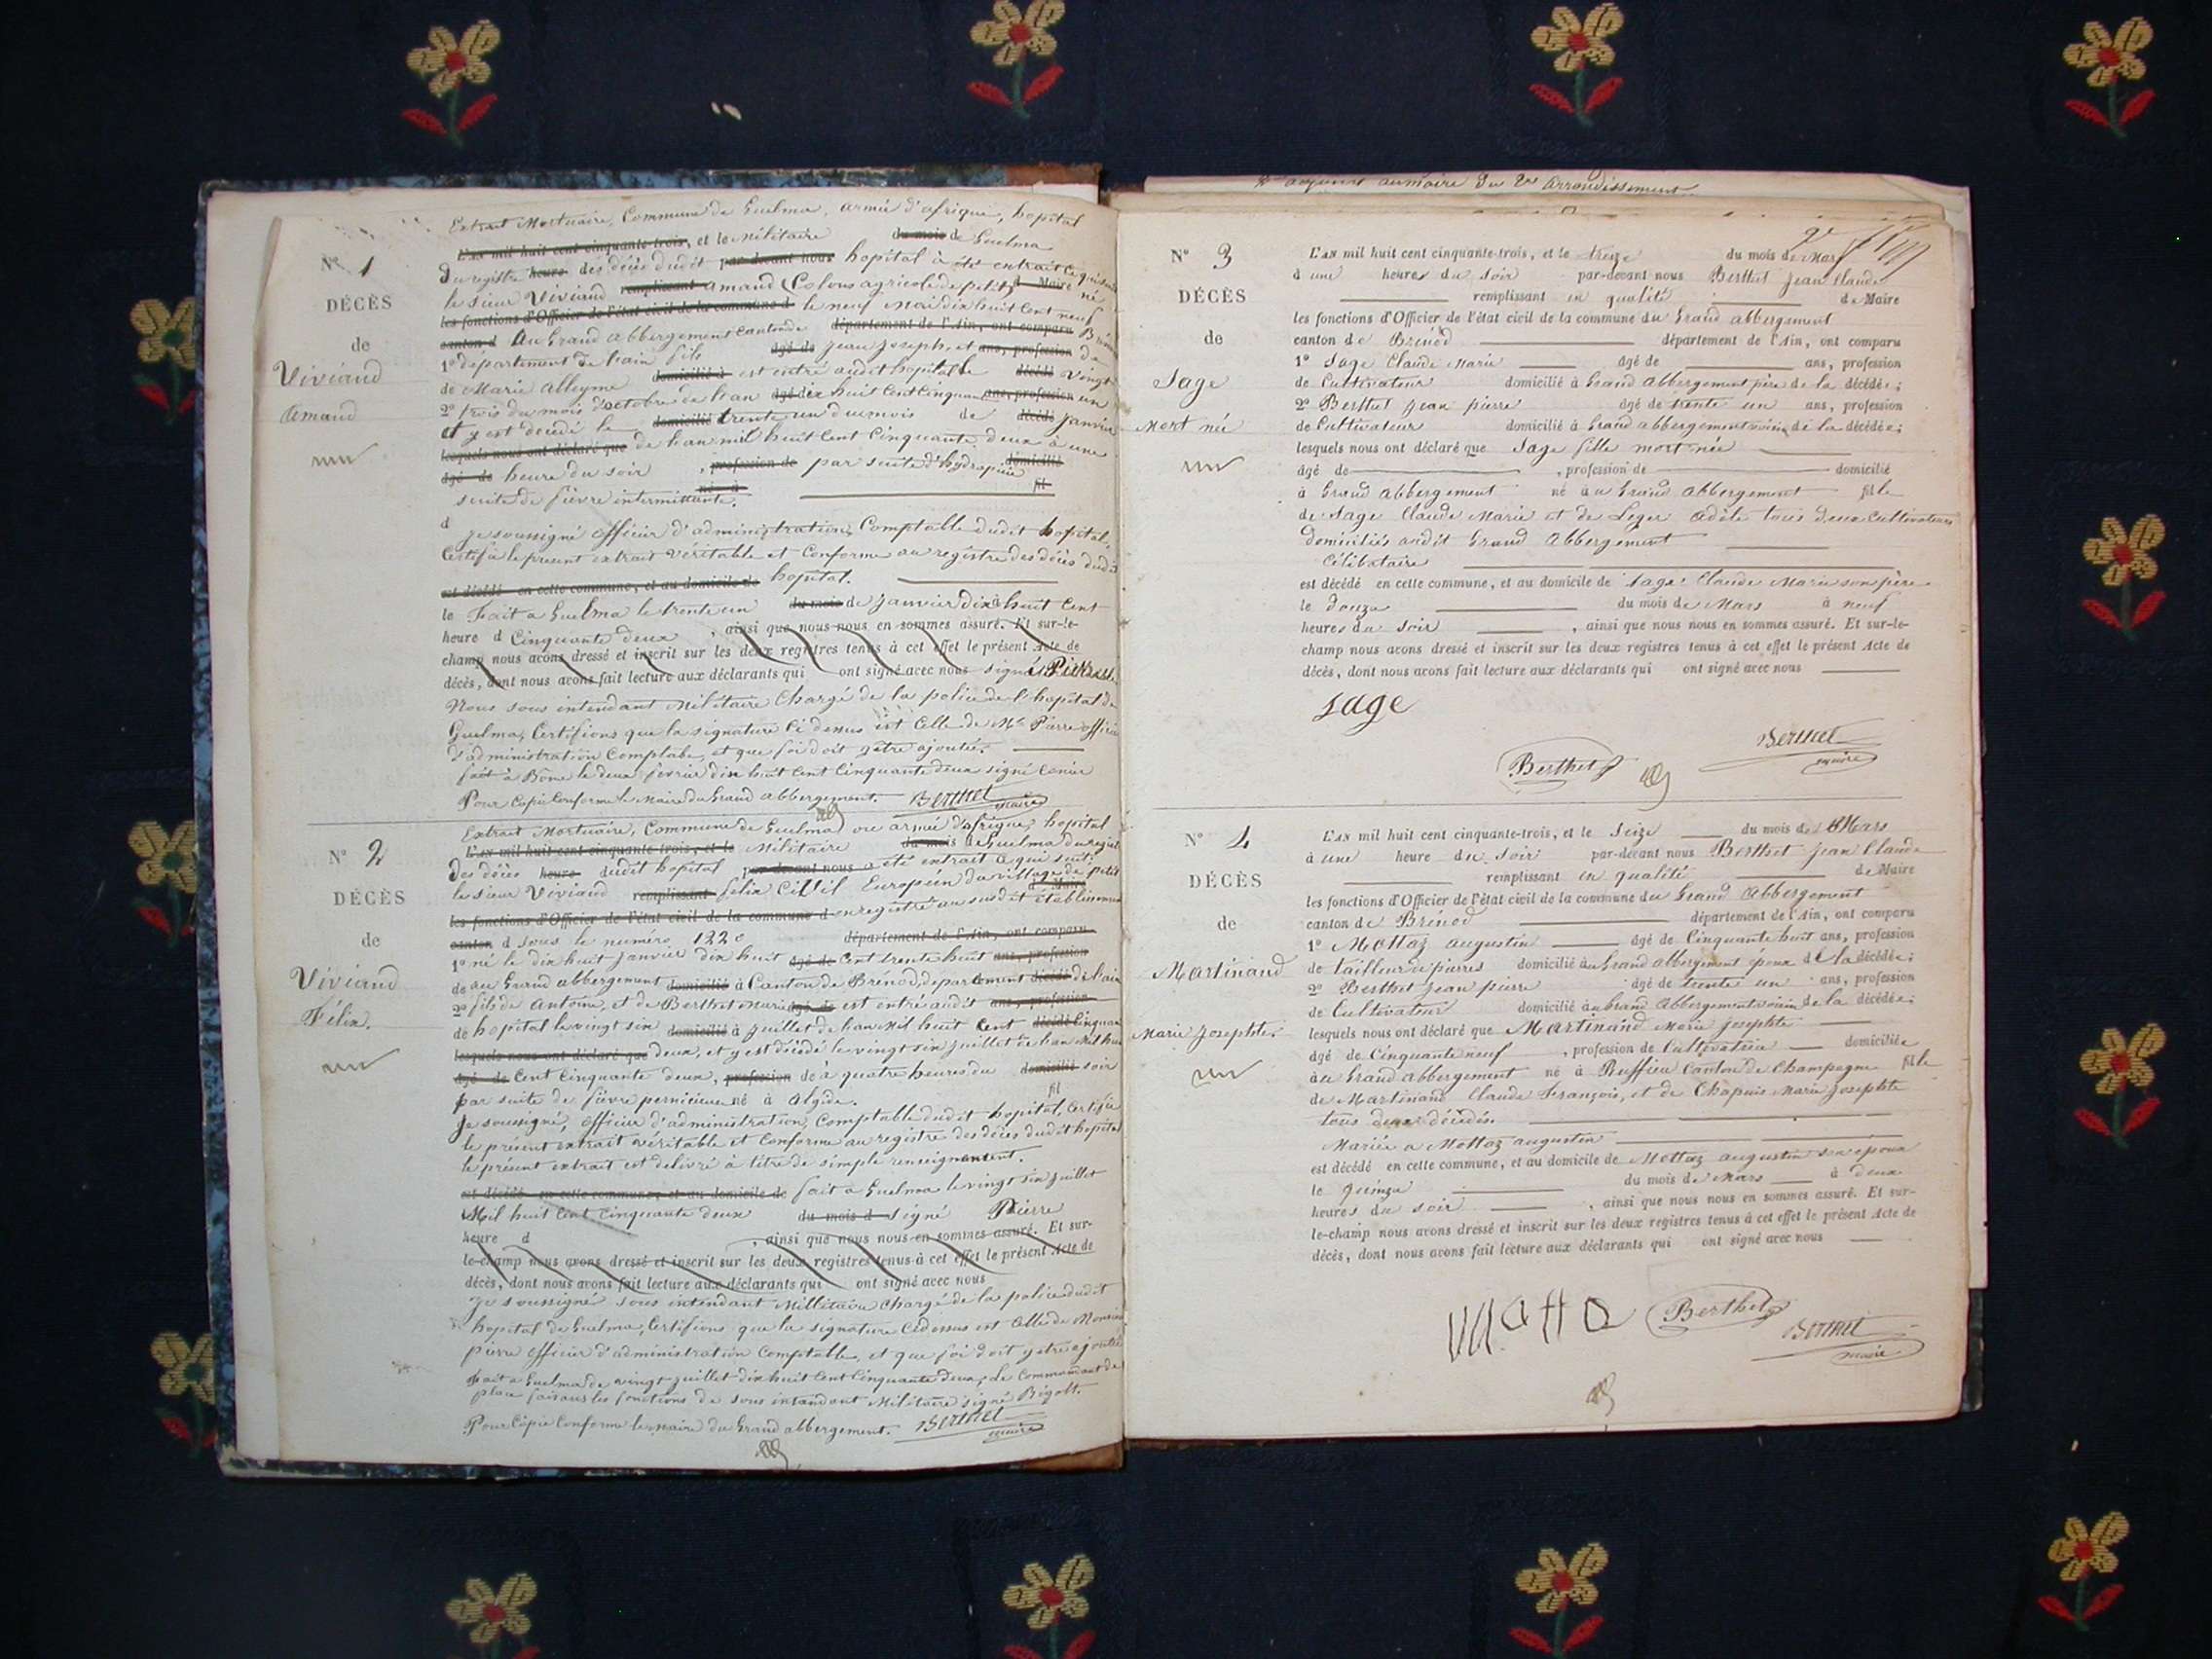 Extrait Mortuaire, Commune de Guelma, armée d'afrique, hopital
L'an mil huit cent cinquante-trois, et le Militaire du mois de Guelma
N° 1
Du registre heure des décès dudit par-devant nous hopital à été extrait ce qui suit
le sieur Viviand remplissant amand (Colons agricole de petit) d Maire né
DÉCÈS
les fonctions d'Officier de l'état civil de la commune d le neuf Mai dix huit Cent neuf
canton d Au Grand abbergement Canton de département de l'Ain, ont comparu
de
1° département de l'ain fils âgé de jean joseph, et ans, profession de
Viviand
de Marie alleyme domicilié à est entré audit hopital le décédé Vingt
Amand
2° trois du mois d'octobre de l'an âgé dix huit Cent Cinquan ans, profession un
et y est decédé le domicilié trente un du mois de décédé janvier
lesquels nous ont déclaré que de l'an mil huit Cent Cinquante deux à une
âgé de heure du soir , profession de par suite d'hydropisie domicilié
suite de fièvre intermittante. né à fil
d je soussigné officier d'administration, Comptable dudit hopital,
Certifie le present extrait véritable et Conforme au registre des décès dudit
est décédé en cette commune, et au domicile de hopital.
le Fait a Guelma le trente un du mois de janvier dix à huit Cent
heure d Cinquante deux , ainsi que nous nous en sommes assuré. Et sur-le-
champ nous avons dressé et inscrit sur les deux registres tenus à cet effet le présent Acte de
décès, dont nous avons fait lecture aux déclarants qui ont signé avec nous signé
Nous sous intendant Militaire Chargé de la police de l'hopital de
Guelma, Certifions que la signature Ci dessus est Celle de Mr Pierre officier
d'administration Comptable, et que foi doit y être ajoutée.
fait à Bône le deux fevrier dix huit Cent Cinquante deux signé
Pour Copie Conforme le Maire du Grand abbergement. Berthet
maire
Extrait Mortuaire, Commune de Guelma ou armée d'afrique, hopital
L'an mil huit cent cinquante-trois, et le Militaire du mois de Guelma du registre
N° 2
Des décès heure dudit hopital par-devant nous a été extrait ce qui suit
le sieur Viviand remplissant felix Civil Européen du village de petit d Maire
DÉCÈS
les fonctions d'Officier de l'état civil de la commune d enregistré au susdit établissement
de
canton d sous le numéro 1220 département de l'Ain, ont comparu
1° né le dix huit janvier dix huit âgé de Cent trente huit ans, profession
Viviand
de au Grand abbergement domicilié à Canton de Brénod, departement décédé de l'ain
Félix.
2° fils de Antoine, et de Berthet Marie âgé de est entré audit ans, profession
de hopital le vingt six domicilié à juillet de l'an Mil huit Cent décédé Cinquante
lesquels nous ont déclaré que deux, et y est décédé le vingt six juillet de l'an Mil huit
âgé de Cent Cinquante deux, profession de à quatre heures du domicilié soir
par suite de fièvre pernicieuse né à algide. fil
Je soussigné, officier d'administration, Comptable dudit hopital, Certifie
le présent extrait véritable et Conforme au registre des décès dudit hopital
le présent extrait est delivré à titre de simple renseignement.
est décédé en cette commune, et au domicile de fait a Guelma le vingt six juillet
Mil huit Cent Cinquante deux du mois d signé Pierre
heure d , ainsi que nous nous en sommes assuré. Et sur-
le-champ nous avons dressé et inscrit sur les deux registres tenus à cet effet le présent Acte de
décès, dont nous avons fait lecture aux déclarants qui ont signé avec nous
Je soussigné sous intendant Millitaire Chargé de la police dudit
hopital de Guelma, Certifions que la signature Ci dessus est Celle de Monsieur
Pierre officier d'administration Comptable, et que foi doit y etre ajoutée
Fait a Guelma de vingt juillet dix huit Cent Cinquante Deux, le Commandant de
place faisant les fonctions de sous intendant Militaire signé Bigolt.
Pour Copie Conforme le maire du Grand abbergement. Berthet
maire
adjoint au maire du 2me arrondissement
N° 3
L'an mil huit cent cinquante-trois, et le treize du mois de Mars
à une heures du soir par-devant nous Berthet Jean Claude
DÉCÈS
remplissant en qualité de Maire
les fonctions d'Officier de l'état civil de la commune du Grand abbergement
de
canton de Brénod département de l'Ain, ont comparu
1° Sage Claude Marie âgé de ans, profession
Sage
de Cultivateur domicilié à Grand abbergement père de la décédée;
2° Berthet jean pierre âgé de trente un ans, profession
Mort née
de Cultivateur domicilié à Grand abbergement voisin de la décédée;
lesquels nous ont déclaré que Sage fille mort née
âgé de , profession de domicilié
à Grand Abbergement né au Grand Abbergement fille
de Sage Claude Marie et de Leger Adèle tous deux Cultivateurs
domiciliés audit Grand Abbergement
Célibataire
est décédé en cette commune, et au domicile de Sage Claude Marie son père
le douze du mois de Mars à neuf
heures du soir , ainsi que nous nous en sommes assuré. Et sur-le-
champ nous avons dressé et inscrit sur les deux registres tenus à cet effet le présent Acte de
décès, dont nous avons fait lecture aux déclarants qui ont signé avec nous
sage
Berthet
Berthet
maire
N° 4
L'an mil huit cent cinquante-trois, et le Seize du mois de Mars
à une heure du soir par-devant nous Berthet jean Claude
DÉCÈS
remplissant en qualité de Maire
les fonctions d'Officier de l'état civil de la commune du Grand Abbergement
de
canton de Brénod département de l'Ain, ont comparu
1° Mottaz augustin âgé de Cinquante huit ans, profession
Martinand
de tailleur de pierres domicilié au Grand abbergement epoux de la décédée;
2° Berthet jean pierre âgé de trente un ans, profession
de Cultivateur domicilié au Grand Abbergement voisin de la décédée;
Marie Josephte.
lesquels nous ont déclaré que Martinand Marie josephte
âgé de Cinquante neuf , profession de Cultivatrice domiciliée
au Grand abbergement né à Ruffieu Canton de Champagne fille
de Martinand Claude François, et de Chapuis Marie Josephte
tous deux décédés.
Mariée a Mottaz augustin
est décédé en cette commune, et au domicile de Mottaz augustin son epoux
le quinze du mois de Mars à deux
heures du soir , ainsi que nous nous en sommes assuré. Et sur-
le-champ nous avons dressé et inscrit sur les deux registres tenus à cet effet le présent Acte de
décès, dont nous avons fait lecture aux déclarants qui ont signé avec nous
Berthet
Berthet
maire